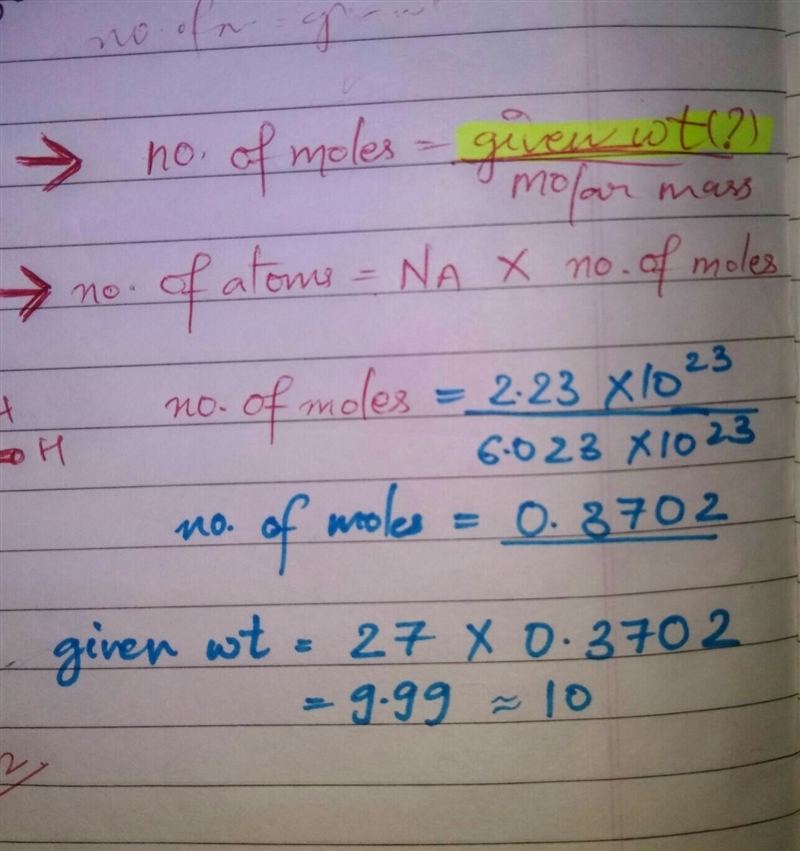 no. of
→ no. of moles = given wt(?)
molar mass
→ no. of atoms = NA × no. of moles
no. of moles = 2.23 ×10²³
6.023 ×10²³
H
no. of moles = 0.3702
given wt = 27 × 0.3702
= 9.99 ≈ 10